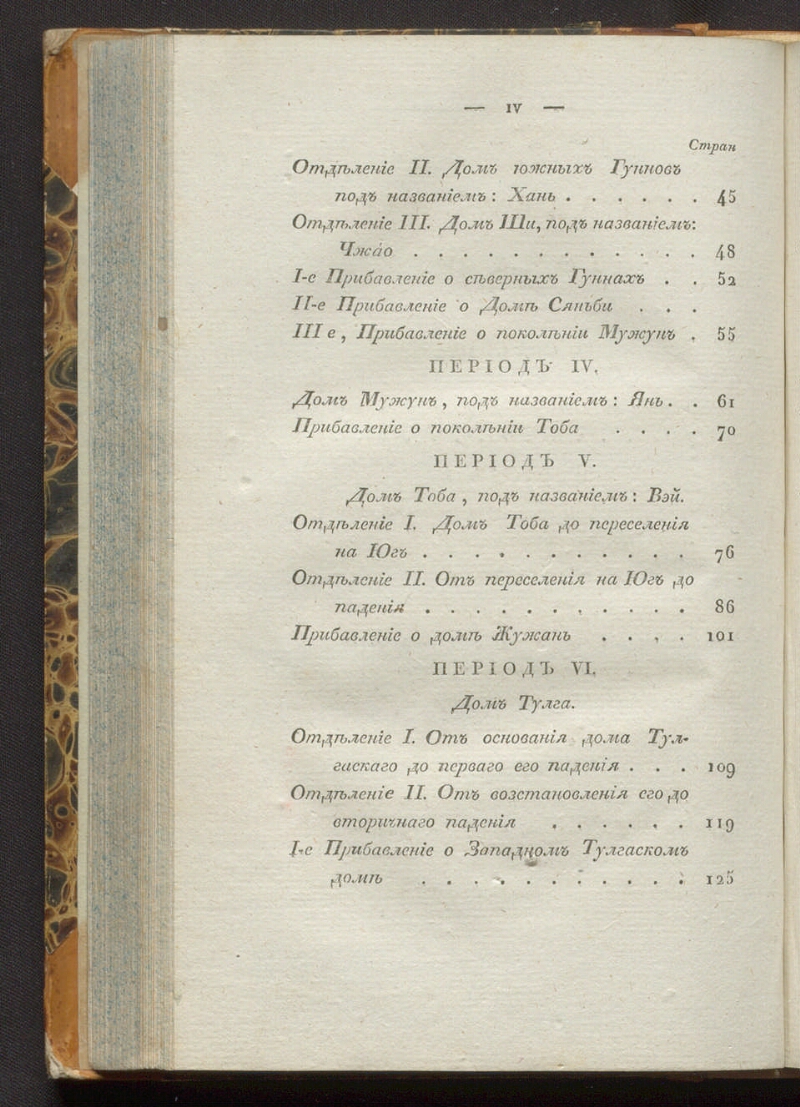 — IV —
Стран
Отдѣленіе II. Домъ южныхъ Гунновъ
подъ названіемъ: Хань . . . . . . 45
Отдѣленіе III. Домъ Ши, подъ названіемъ:
Чжао . . . . . . . . . . . . 48
I-е Прибавленіе о сѣверныхъ Гуннахъ . . 52
II-е Прибавленіе о Домѣ Сяньби . . .
III е, Прибавленіе о поколѣніи Мужунъ . 55
ПЕРІОДЪ IV.
Домъ Мужунъ, подъ названіемъ: Янь. . 61
Прибавленіе о поколѣніи Тоба . . . . 70
ПЕРІОДЪ V.
Домъ Тоба, подъ названіемъ: Вэй.
Отдѣленіе I. Домъ Тоба до переселенія
на Югъ . . . . . . . . . . . 76
Отдѣленіе II. Отъ переселенія на Югъ до
паденія . . . . . . . . . . . 86
Прибавленіе о домѣ Жужань . . . . 101
ПЕРІОДЪ VI.
Домъ Тулга.
Отдѣленіе I. Отъ основанія дома Тул-
гаскаго до перваго его паденія . . . 109
Отдѣленіе II. Отъ возстановленія его до
вторичнаго паденія . . . . . . 119
I-е Прибавленіе о Западномъ Тулгаскомъ
домѣ . . . . . . . . . . . 125